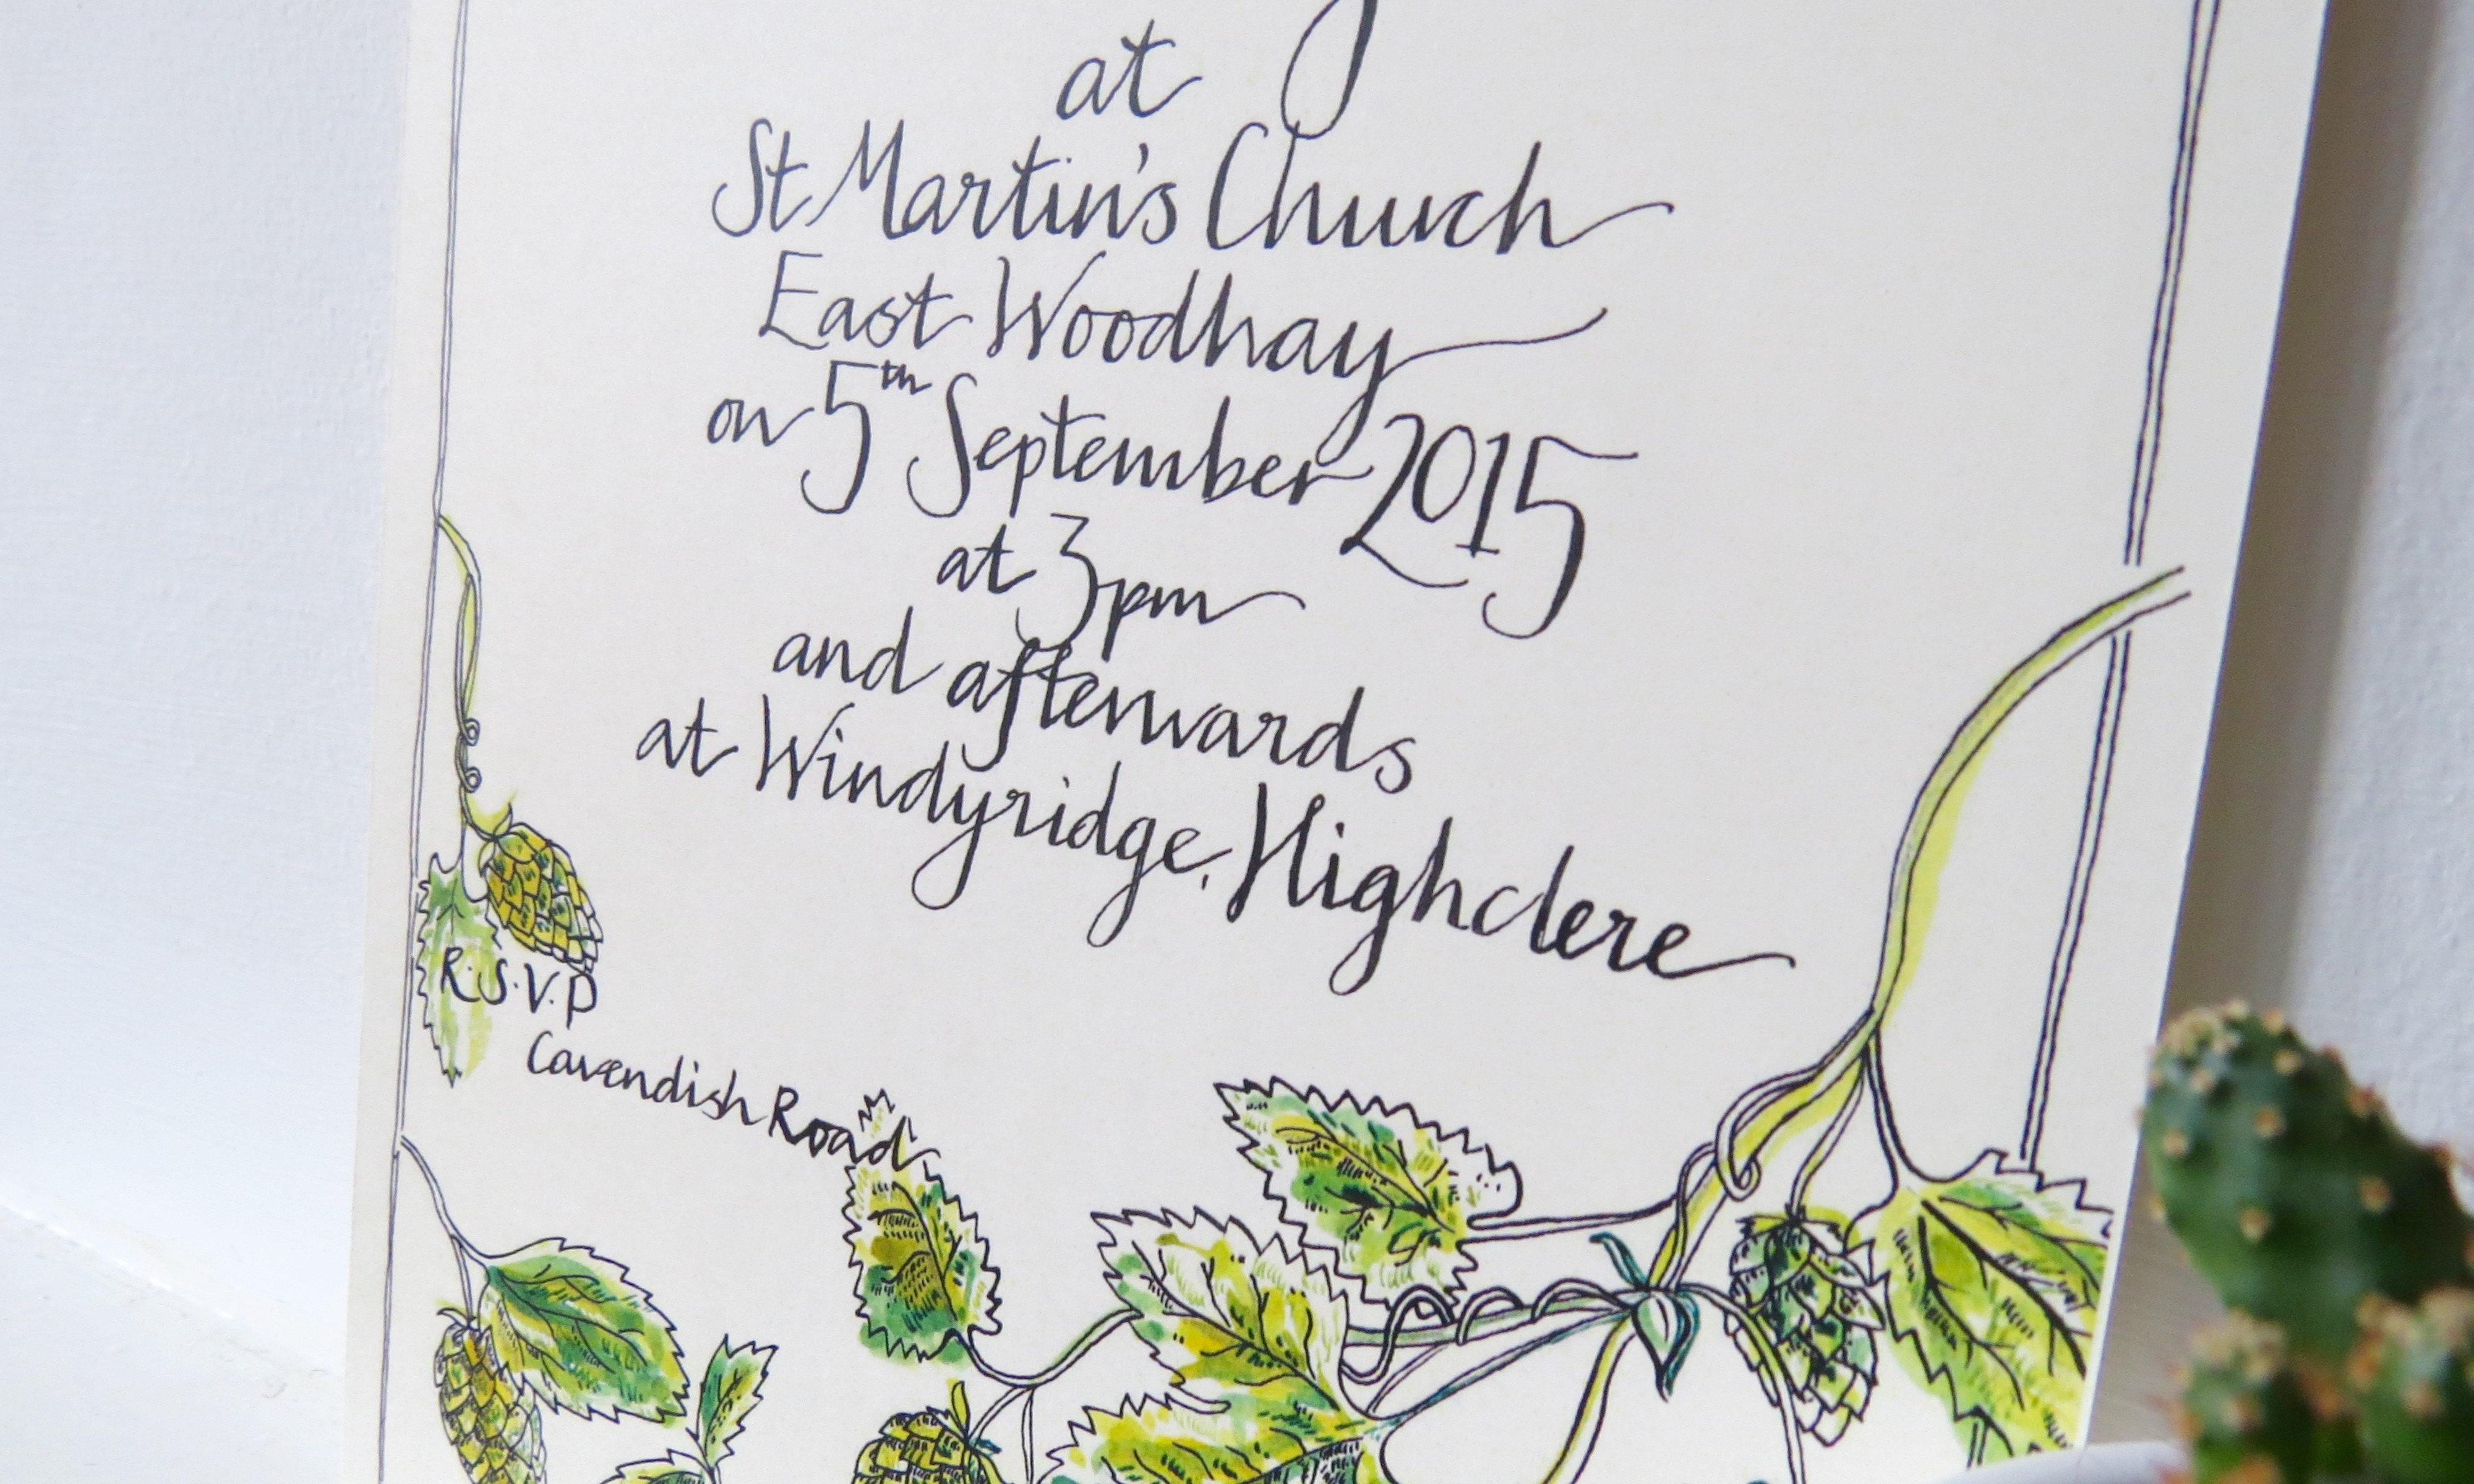 at
St Martin's Church
East Woodhay
on 5th September 2015
at 3pm
and afterwards
at Windyridge, Highclere
R.S.V.P
Cavendish Road